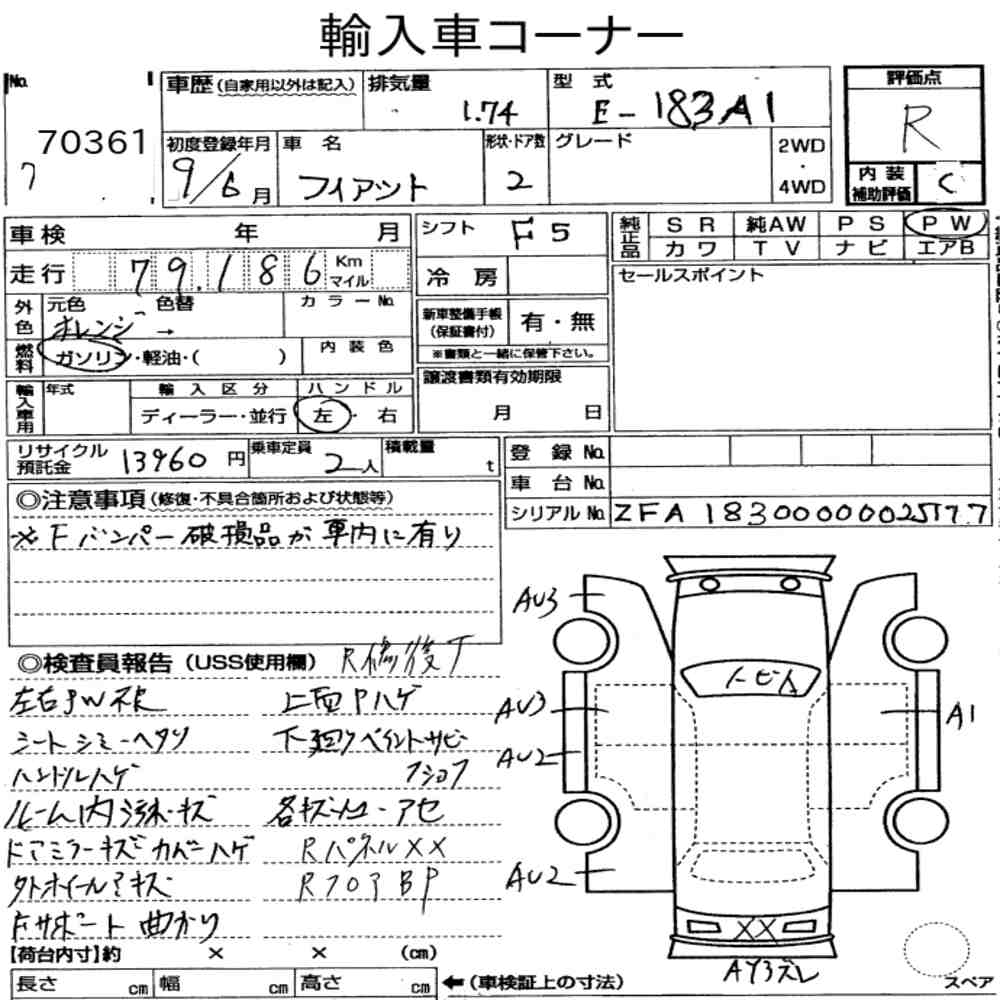 輸入車コーナー
No.
70361
7
車歴 (自家用以外は記入)
排気量
1.74
型式
E-183A1
評価点
R
初度登録年月
9/6月
車名
フィアット
形状・ドア数
2
グレード
2WD
・
4WD
内装
補助評価
C
車検 年 月
シフト
F5
純正品
SR 純AW PS PW
カワ TV ナビ エアB
走行
79,186
Km
マイル
冷房
セールスポイント
外色
元色 色替 カラーNo.
オレンジ →
新車整備手帳
(保証書付)
有・無
※書類と一緒に保管下さい。
燃料
ガソリン・軽油・( )
内装色
譲渡書類有効期限
月 日
輸入車用
年式
輸入区分
ディーラー・並行
ハンドル
左・右
リサイクル
預託金
13960円
乗車定員
2人
積載量
t
登録No.
車台No.
シリアルNo. ZFA18300000025177
◎注意事項 (修復・不具合箇所および状態等)
※Fバンパー破損品が車内に有り
◎検査員報告 (USS使用欄)
R修復丁
左右PW不良
上面Pハゲ
シートシミ・ヘタリ
下廻りペイントサビ
ハンドルハゲ
ルーム内汚れ・キズ
ドアミラーキズカバーハゲ
RパネルXX
RフロアBP
外ホイールキズ
Fサポート曲がり
AU3
AU3
AU2
AU2
トビA
A1
XX
AY3ズレ
スペア
【荷台内寸】約 × × (cm)
長さ cm 幅 cm 高さ cm ←(車検証上の寸法)